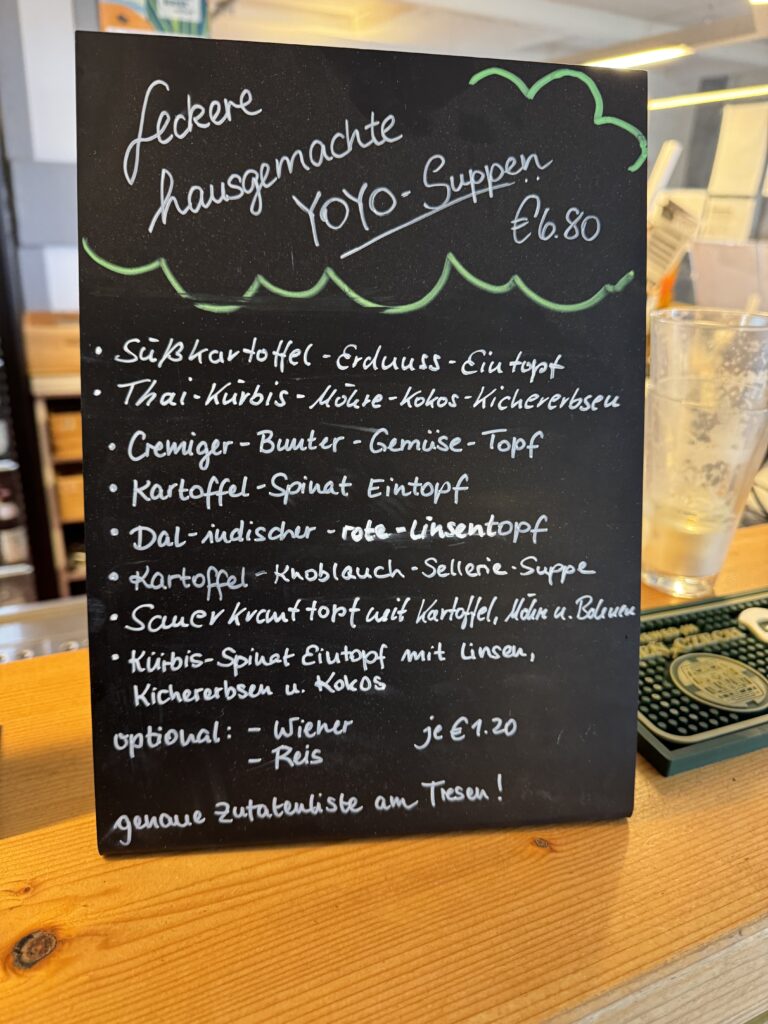 leckere
hausgemachte
YOYO-Suppen
€6.80
• Süßkartoffel-Erdnuss-Eintopf
• Thai-Kürbis-Möhre-Kokos-Kichererbsen
• Cremiger-Bunter-Gemüse-Topf
• Kartoffel-Spinat Eintopf
• Dal-indischer-rote-Linsentopf
• Kartoffel-Knoblauch-Sellerie-Suppe
• Sauerkrauttopf mit Kartoffel, Möhre u. Bohnen
• Kürbis-Spinat Eintopf mit Linsen,
Kichererbsen u. Kokos
optional: - Wiener je € 1.20
- Reis
genaue Zutatenliste am Tresen!